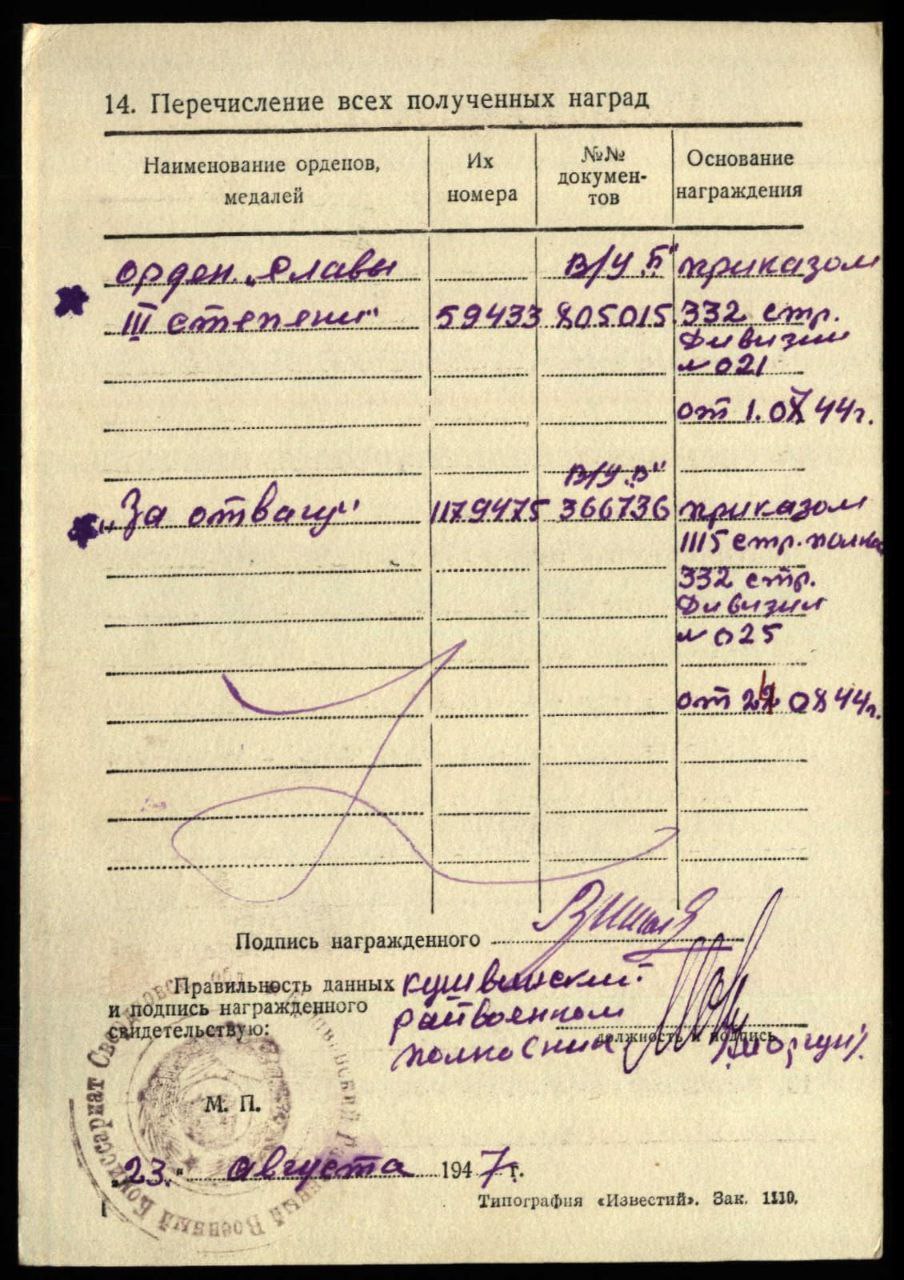 14. Перечисление всех полученных наград
Наименование орденов, медалей
Их номера
№№ докумен-тов
Основание награждения
орден „Славы
в/у „Б" приказом
III степени" 59433 805015 332 стр.
дивизии
№ 021
от 1.07 44 г.
в/у „В"
„За отвагу" 1179475 366736 приказом
1115 стр. полка
332 стр.
дивизии
№ 025
от 08 44 г.
Подпись награжденного
Правильность данных
и подпись награжденного
свидетельствую:
кушвинский
райвоенком
полковник
должность и подпись
М. П.
Военный Комиссариат
„23" августа 1947 г.
Типография «Известий». Зак. 1110.